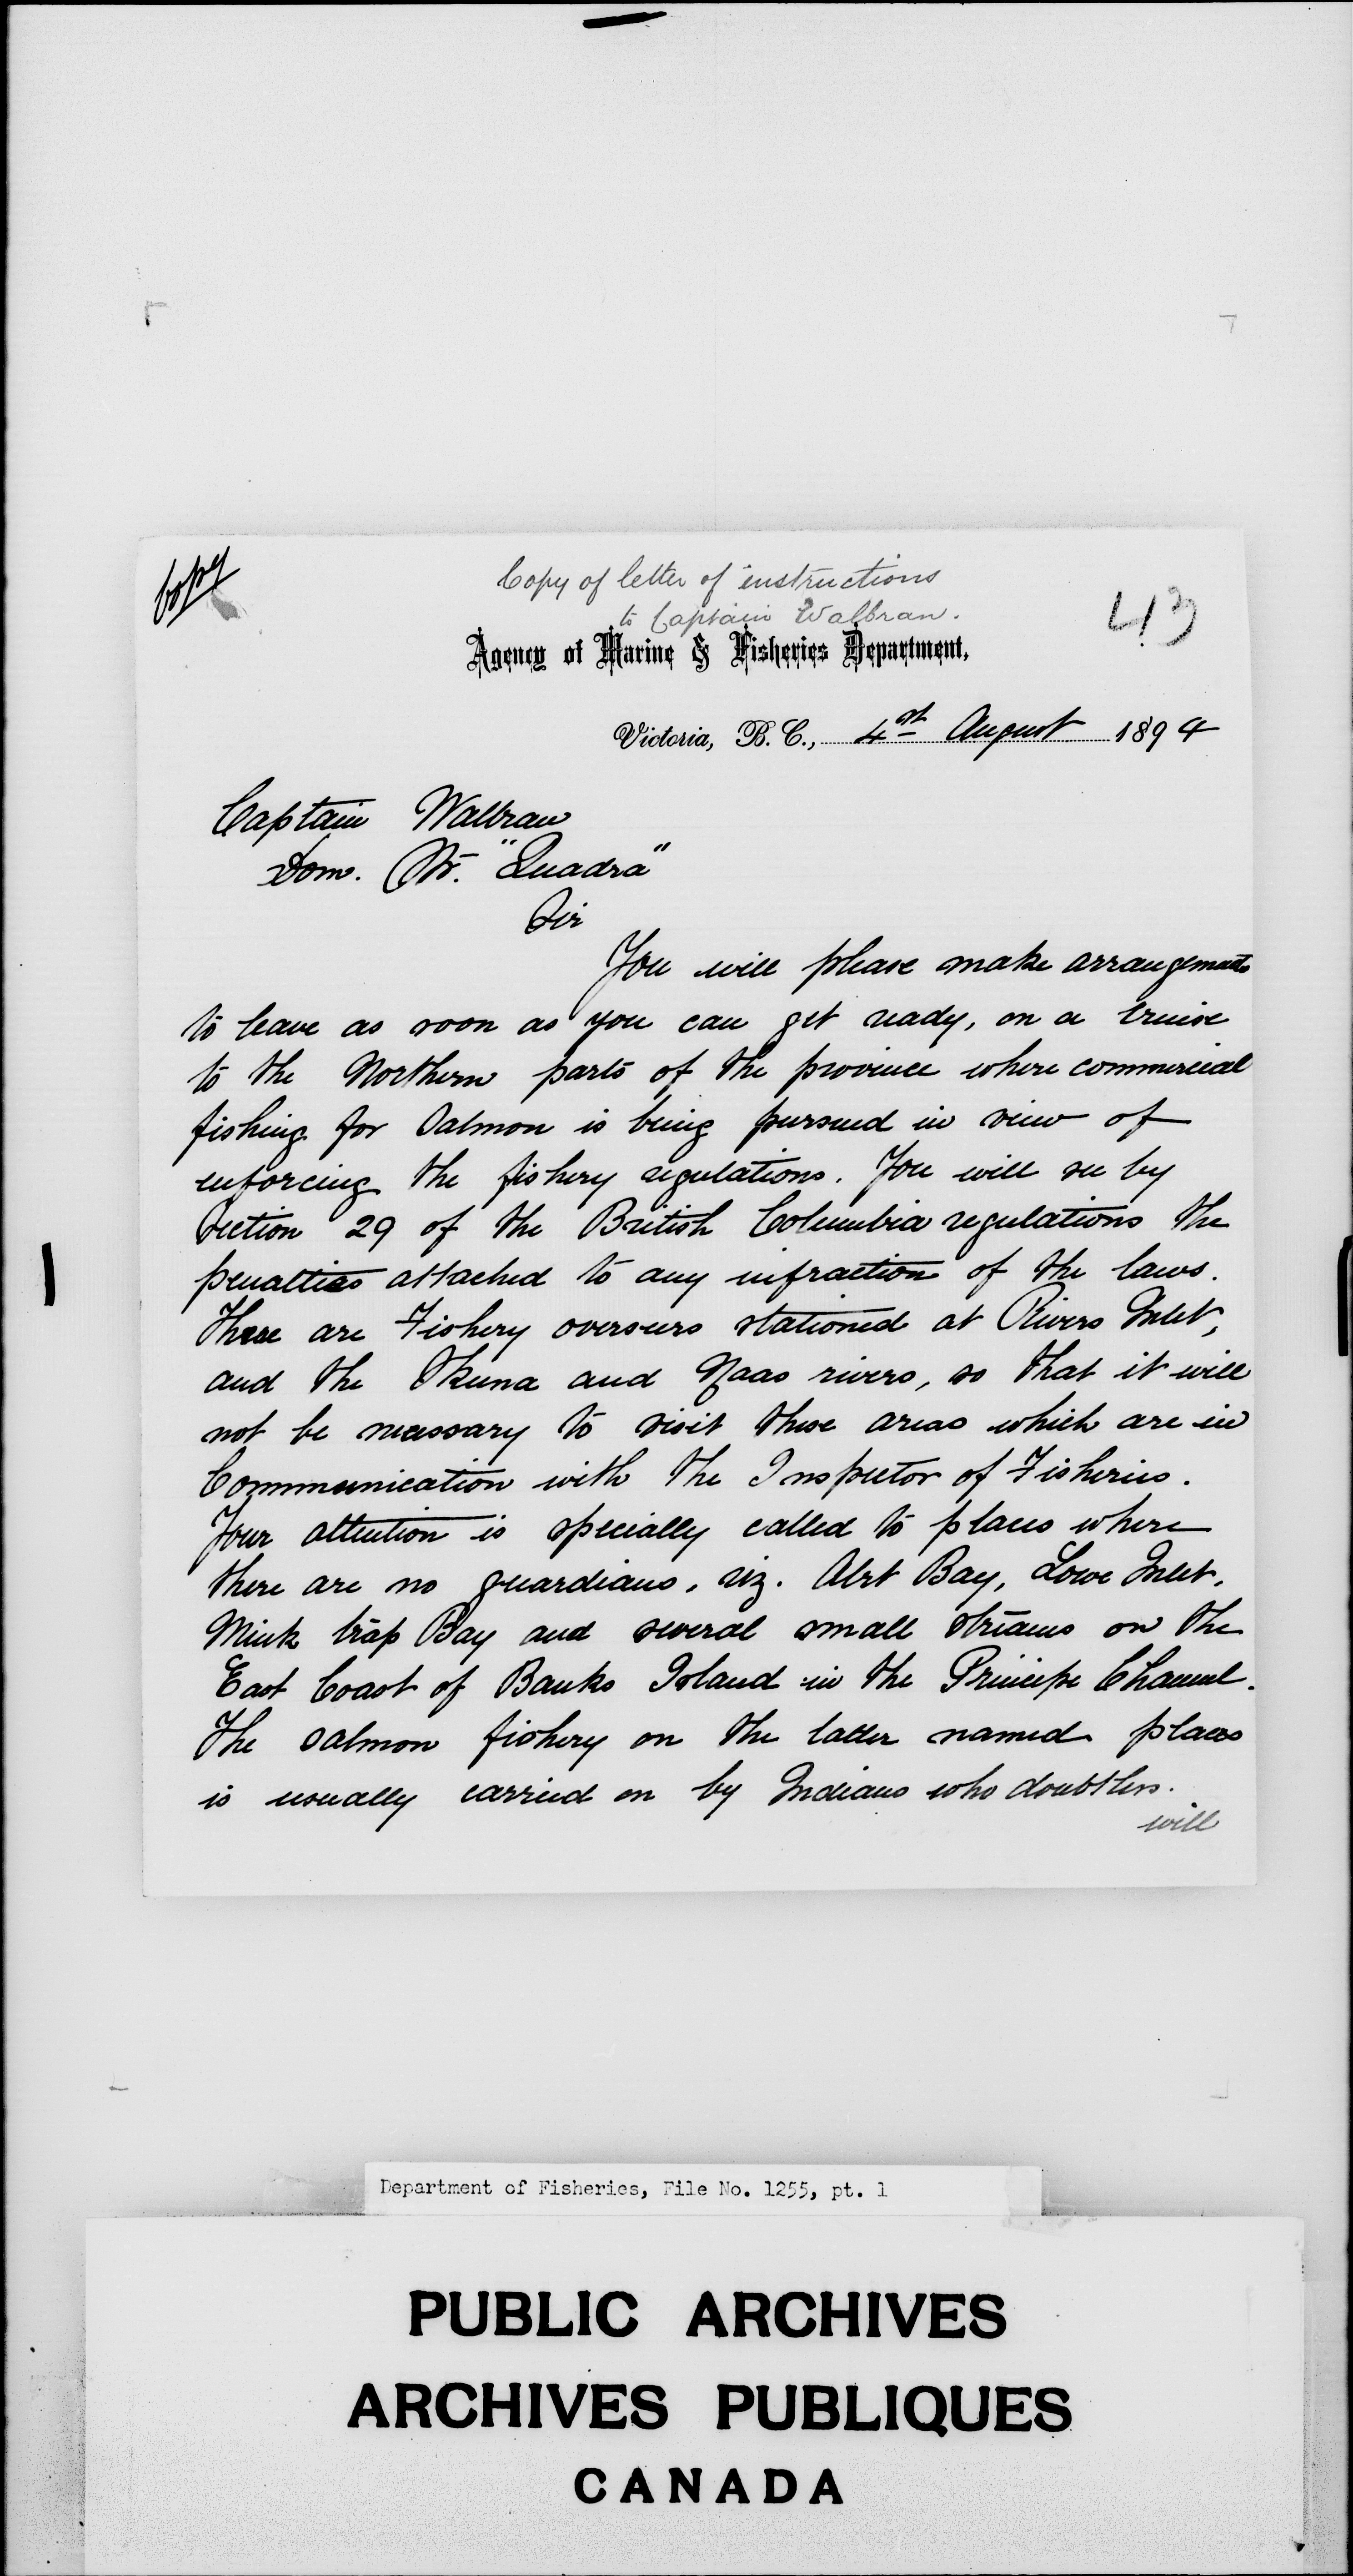 Copy
Copy of letter of instructions
to Captain Walbran.
43
Agency of Marine & Fisheries Department,
Victoria, B.C., 4st August 1894
Captain Walbran
Dom. Str. "Quadra"
Sir
You will please make arrangements
to leave as soon as you can get ready, on a Cruise
to the Northern parts of the province where commercial
fishing for Salmon is being pursued in view of
enforcing the fishery regulations. You will see by
Section 29 of the British Columbia regulations the
penalties attached to any infraction of the laws.
There are Fishery overseers stationed at Rivers Inlet,
and the Skeena and Naas rivers, so that it will
not be necessary to visit these areas which are in
Communication with the Inspector of Fisheries.
Your attention is specially called to places where
there are no guardians, viz. Alert Bay, Lowe Inlet,
Mink trap Bay and several small streams on the
East Coast of Banks Island in the Principe Channel.
The salmon fishery on the latter named places
is usually carried on by Indians who doubtless.
will
Department of Fisheries, File No. 1255, pt. 1
PUBLIC ARCHIVES
ARCHIVES PUBLIQUES
CANADA